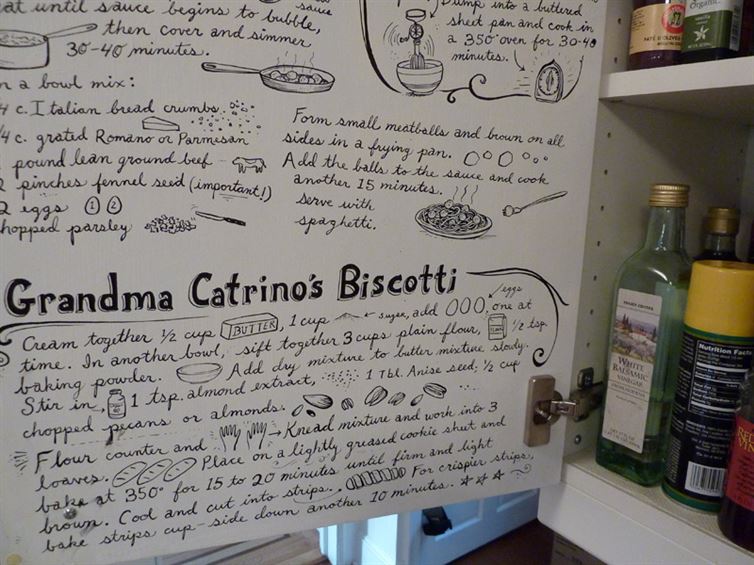 at until sauce begins to bubble,
then cover and simmer
30-40 minutes.
sauce
n a bowl mix:
/4 c. Italian bread crumbs
/4 c. grated Romano or Parmesan
pound lean ground beef
2 pinches fennel seed (important!)
2 eggs 1 2
chopped parsley
Pump into a buttered
sheet pan and cook in
a 350° oven for 30-40
minutes.
Form small meatballs and brown on all
sides in a frying pan.
Add the balls to the sauce and cook
another 15 minutes.
Serve with
spaghetti.
Grandma Catrino's Biscotti
Cream together 1/2 cup BUTTER, 1 cup ← sugar, add eggs, one at
time. In another bowl, sift together 3 cups plain flour, 1/2 tsp.
baking powder. Add dry mixture to butter mixture slowly.
Stir in 1 tsp. almond extract, 1 Tbl. Anise seed, 1/2 cup
chopped pecans or almonds.
Flour counter and → Knead mixture and work into 3
loaves. Place on a lightly greased cookie sheet and
bake at 350° for 15 to 20 minutes until firm and light
brown. Cool and cut into strips. For crispier strips,
bake strips cup-side down another 10 minutes.
Organic
TRADER GIOTTO'S
WHITE
BALSAMIC
VINEGAR
Nutrition Facts